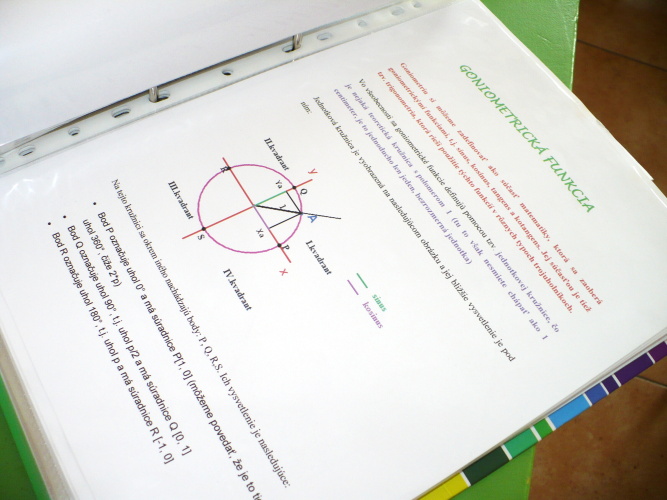 GONIOMETRICKÁ FUNKCIA
Goniometriu si môžeme zadefinovať ako súčasť matematiky, ktorá sa zaoberá
goniometrickými funkciami, t.j. sínus, kosínus, tangens a kotangens. Jej súčasťou je tiež
tzv. trigonometria, ktorá rieši použitie týchto funkcií v rôznych typoch trojuholníkoch.
Vo všeobecnosti sa goniometrické funkcie definujú pomocou tzv jednotkovej kružnice, čo
je nejaká teoretická kružnica s polomerom 1 (tu to však nesmiete chápať ako 1
centimeter, je to jednoducho len jeden, bezrozmerná jednotka)
Jednotková kružnica je vyobrazená na nasledujúcom obrázku a jej bližšie vysvetlenie je pod
ním:
II.kvadrant
I.kvadrant
III.kvadrant
IV.kvadrant
y
Q
Ya
1
A
R
Xa
P
S
x
sínus
kosínus
Na tejto kružnici sa okrem iného nachádzajú body: P, Q, R, S. Ich vysvetlenie je nasledujúce:
• Bod P označuje uhol 0° a má súradnice P[1, 0] (môžeme povedať, že je to ti
uhol 360°, čiže 2*p)
• Bod Q označuje uhol 90°, t.j. uhol p/2 a má súradnice Q [0, 1]
• Bod R označuje uhol 180°, t.j. uhol p a má súradnice R [-1, 0]